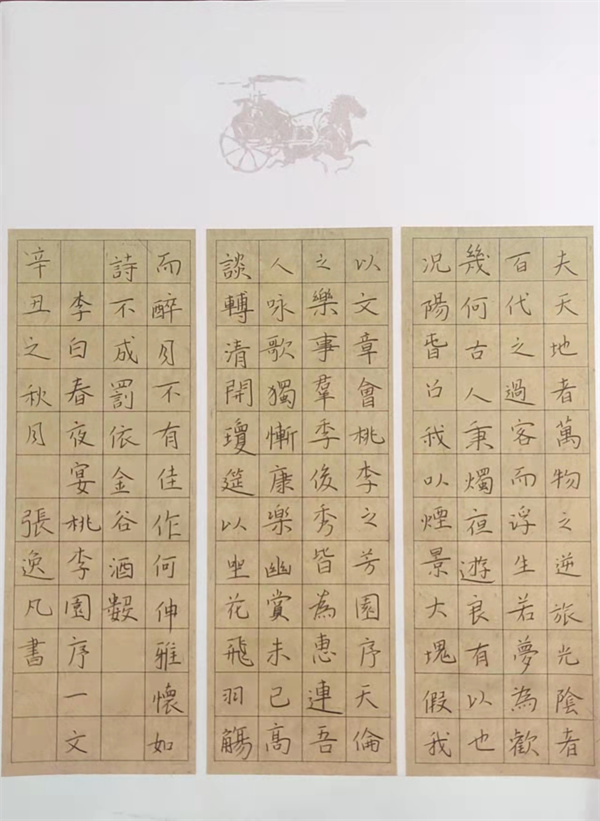 夫天地者萬物之逆旅光陰者
百代之過客而浮生若夢為歡
幾何古人秉燭夜遊良有以也
况陽旾召我以煙景大塊假我
以文章會桃李之芳園序天倫
之樂事羣季俊秀皆為惠連吾
人咏歌獨慚康樂幽賞未已高
談轉清開瓊筵以坐花飛羽觴
而醉月不有佳作何伸雅懷如
詩不成罰依金谷酒數
李白春夜宴桃李園序一文
辛丑之秋月 張逸凡書